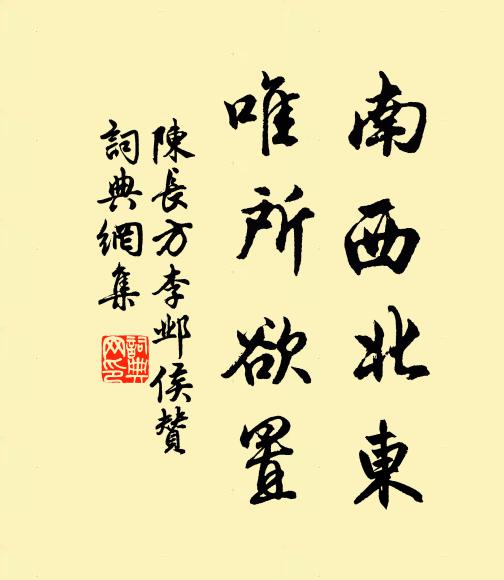 南西北東
唯所欲置
陳長方李鄴侯贊
詞典網集
詞典網印